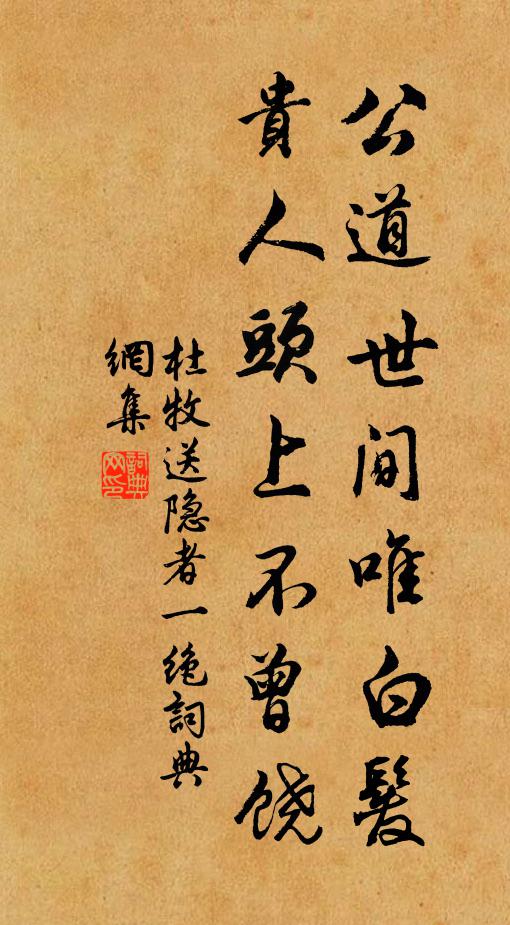 公道世間唯白髮
貴人頭上不曾饶
杜牧送隐者一绝詞典
網集
詞典
网印